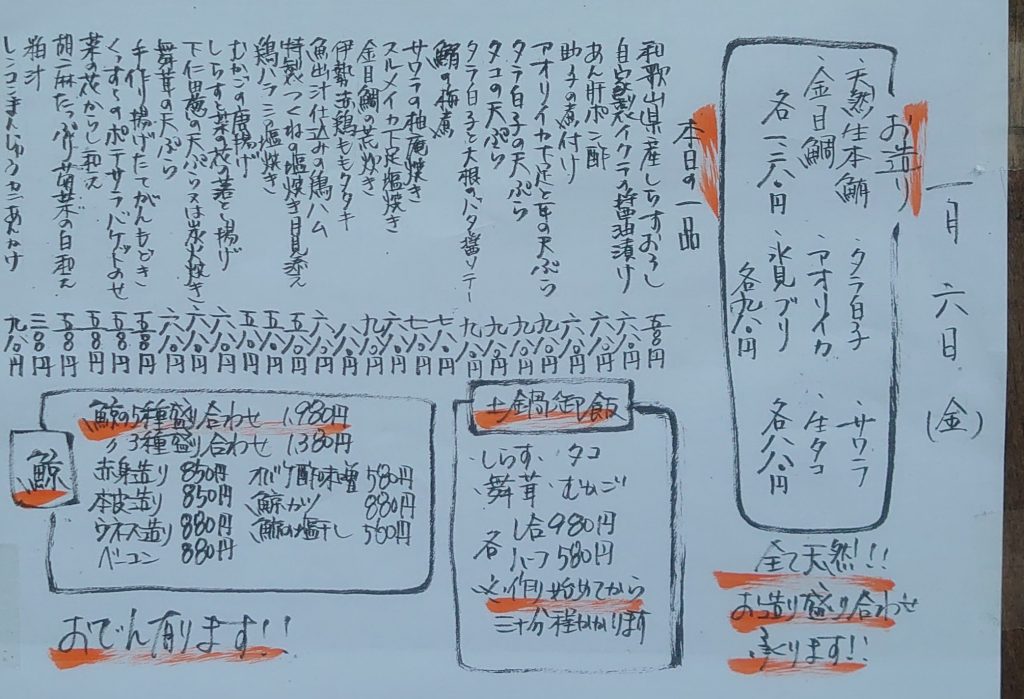 一月六日(金)
お造り
・天然生本鮪
・金目鯛
各一、二八〇円
・タラ白子
・アオリイカ
・氷見ブリ
各九八〇円
・サワラ
・生タコ
各八八〇円
全て天然!!!
お造り盛り合わせ
承ります!!
本日の一品
和歌山県産しらすおろし 五八〇円
自家製イクラの醤油漬け 六八〇円
あん肝ポン酢 六八〇円
助子の煮付け 六八〇円
アオリイカ下足と耳の天ぷら 九八〇円
タラ白子の天ぷら 九八〇円
タコの天ぷら 九八〇円
タラ白子と大根のバタ醤ソテー 九八〇円
鮪の梅煮 七八〇円
サワラの柚庵焼き 七八〇円
スルメイカ下足塩焼き 六八〇円
金目鯛の荒炊き 九八〇円
伊勢赤鶏ももタタキ 八八〇円
魚出汁仕込みの鶏ハム 六八〇円
特製つくねの塩焼き月見添え 五八〇円
鶏ハラミ塩焼き 五八〇円
むかごの唐揚げ 六八〇円
しらすと菜の花のかき揚げ 六八〇円
下仁田葱の天ぷら又は炭火焼き 六八〇円
舞茸の天ぷら 六八〇円
手作り揚げたてがんもどき 五八〇円
くんすものポテサラバケットのせ 五八〇円
菜の花からし和え 五八〇円
胡麻たっぷり菊菜の白和え 五八〇円
粕汁 三八〇円
レンコンまんじゅうカニあんかけ 九八〇円
土鍋御飯
・しらす・タコ
・舞茸・むかご
各 1合980円
ハーフ580円
※作り始めてから
三十分程かかります
鯨
鯨の5種盛り合わせ 1,980円
〃3種盛り合わせ 1,380円
赤身造り 850円 オバケ酢味噌 580円
本皮造り 850円 鯨カツ 880円
ウネス造り 880円 鯨の塩干し 580円
ベーコン 880円
おでん有ります!!